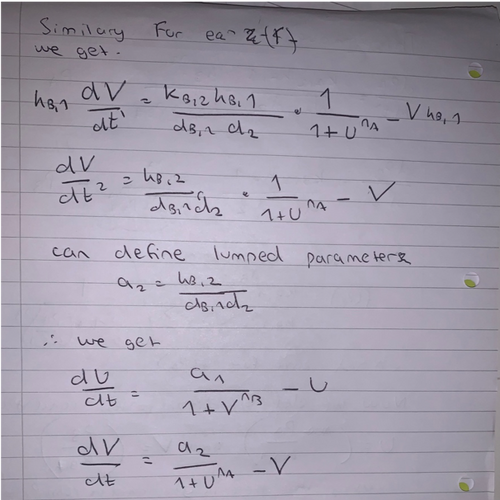 Similary For ea
we get.
h_B,1 dV/dt' = k_B,2 h_B,1 / d_B,1 d_2 • 1 / 1+U^n_A - V h_B,1
dV/dt^2 = h_B,2 / d_B,1 d_2 • 1 / 1+U^n_A - V
can define lumped parameters
a_2 = h_B,2 / d_B,1 d_2
∴ we get
dU/dt = a_1 / 1+V^n_B - U
dV/dt = a_2 / 1+U^n_A - V